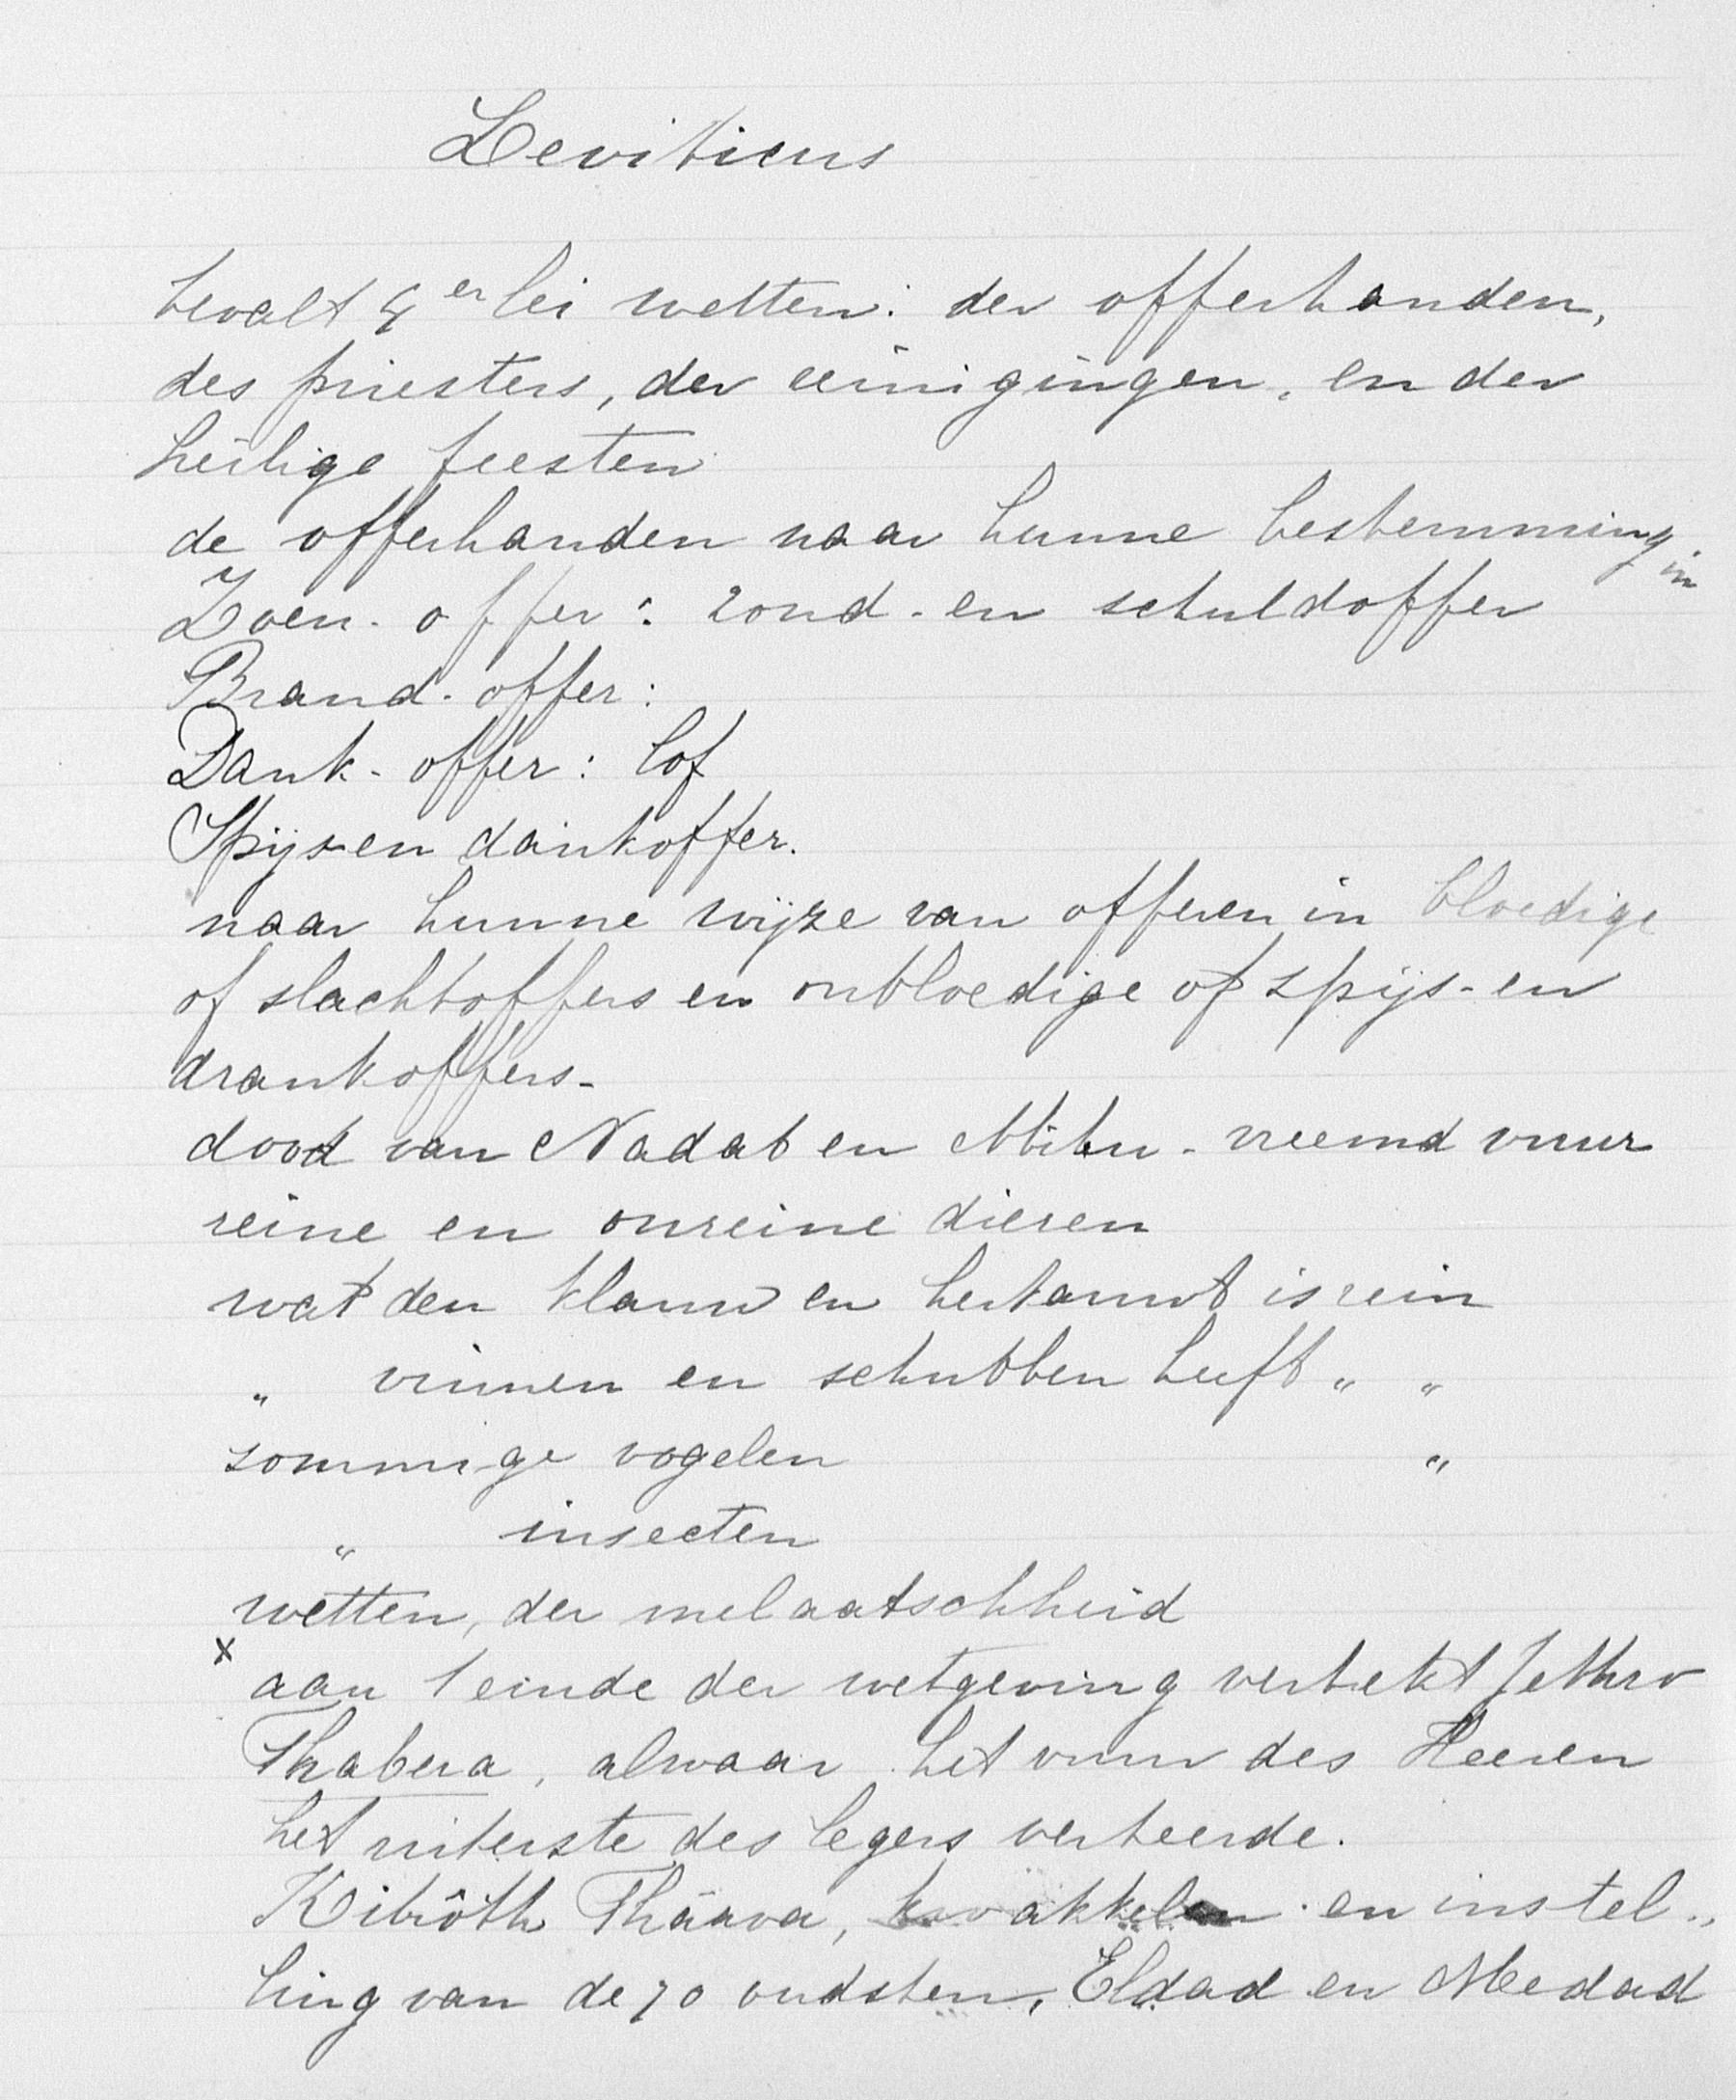 Leviticus
bevalt 4 erlei wetten: der offerhanden,
des priesters, der reinigingen, en der
heilige feesten
de offerhanden naar hunne bestemming in
Zoen-offer: zond-en schuldoffer
Brand-offer:
Dank-offer: lof
Spijs en dankoffer.
naar hunne wijze van offeren in bloedige
of slachtoffers en onbloedige of spijs-en
drankoffers-
dood van Nadab en Abihu - vreemd vuur
reine en onreine dieren
wat den klauw en herkauwt is rein
" vinnen en schubben heeft " "
sommige vogelen "
" insecten
wetten, der melaatschheid
x
aan 't einde der wetgeving vertrekt Jethro
Thabera, alwaar het vuur des Heeren
het uiterste des legers verteerde.
Kibrôth Thäava, kwakkelen en instel„
ling van de 70 oudsten, Eldad en Medad